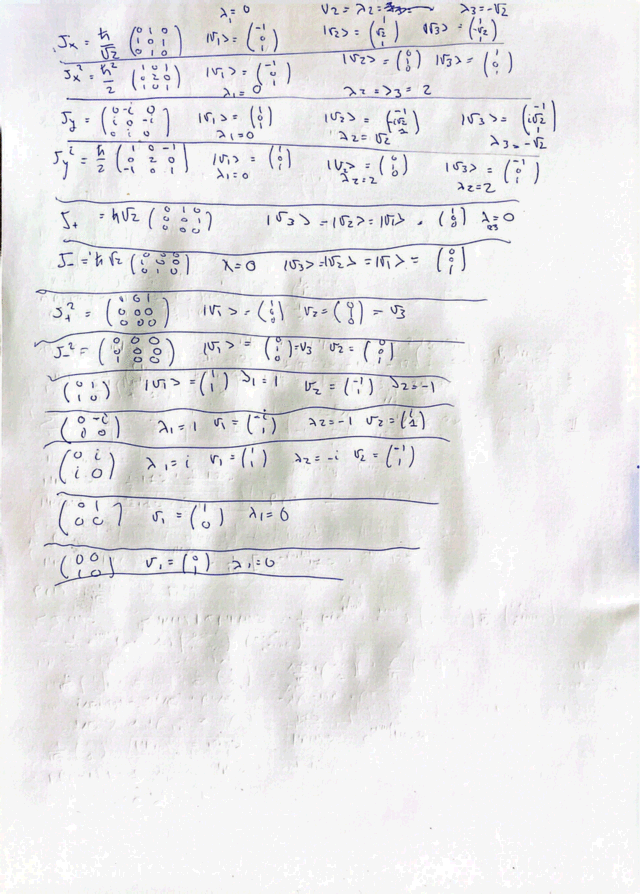 λ₁ = 0 V₂ = λ₂ = λ₃ = -√2
Jx = ħ/√2 (0 1 0; 1 0 1; 0 1 0) |V₁> = (-1; 0; 1) |V₂> = (1; √2; 1) |V₃> = (1; -√2; 1)
Jx² = ħ²/2 (1 0 1; 0 2 0; 1 0 1) |V₁> = (-1; 0; 1) |V₂> = (0; 1; 0) |V₃> = (1; 0; 1)
λ₁ = 0 λ₂ = λ₃ = 2
Jy = (0 -i 0; i 0 -i; 0 i 0) |V₁> = (1; 0; 1) |V₂> = |V₃> = (-1; i√2; 1)
λ₁ = 0 λ₂ = √2 λ₃ = -√2
Jy = ħ/2 (1 0 -1; 0 2 0; -1 0 1) |V₁> = (1; 0; 1) |V₂> = (0; 1; 0) |V₃> = (-1; 0; 1)
λ₁ = 0 λ₂ = 2 λ₂ = 2
J₊ = ħ√2 (0 1 0; 0 0 1; 0 0 0) |V₃> = |V₂> = |V₁> = (1; 0; 0) λ = 0
J₋ = ħ√2 (0 0 0; 1 0 0; 0 1 0) λ = 0 |V₃> = |V₂> = |V₁> = (0; 0; 1)
J₊² = (0 0 1; 0 0 0; 0 0 0) |V₁> = (1; 0; 0) V₂ = (0; 1; 0) = V₃
J₋² = (0 0 0; 0 0 0; 1 0 0) |V₁> = (0; 1; 0) = V₃ V₂ = (0; 0; 1)
(0 1; 1 0) |V₁> = (1; 1) λ₁ = 1 V₂ = (-1; 1) λ₂ = -1
(0 -i; i 0) λ₁ = 1 V₁ = (-i; 1) λ₂ = -1 V₂ = (i; 1)
(0 i; i 0) λ₁ = i V₁ = (1; 1) λ₂ = -i V₂ = (-1; 1)
(0 1; 0 0) V₁ = (1; 0) λ₁ = 0
(0 0; 1 0) V₁ = (0; 1) λ₁ = 0